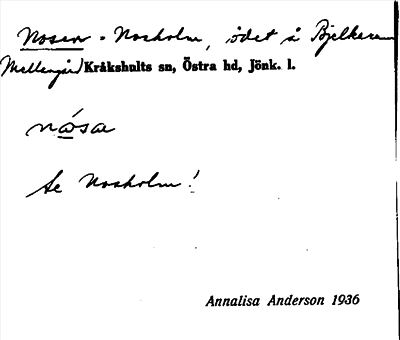 Nosen = Nosholm, ödet å Bjelkeram
Mellangård Kråkshults sn, Östra hd, Jönk. l.
nåsa
Se Nosholm!
Annalisa Anderson 1936